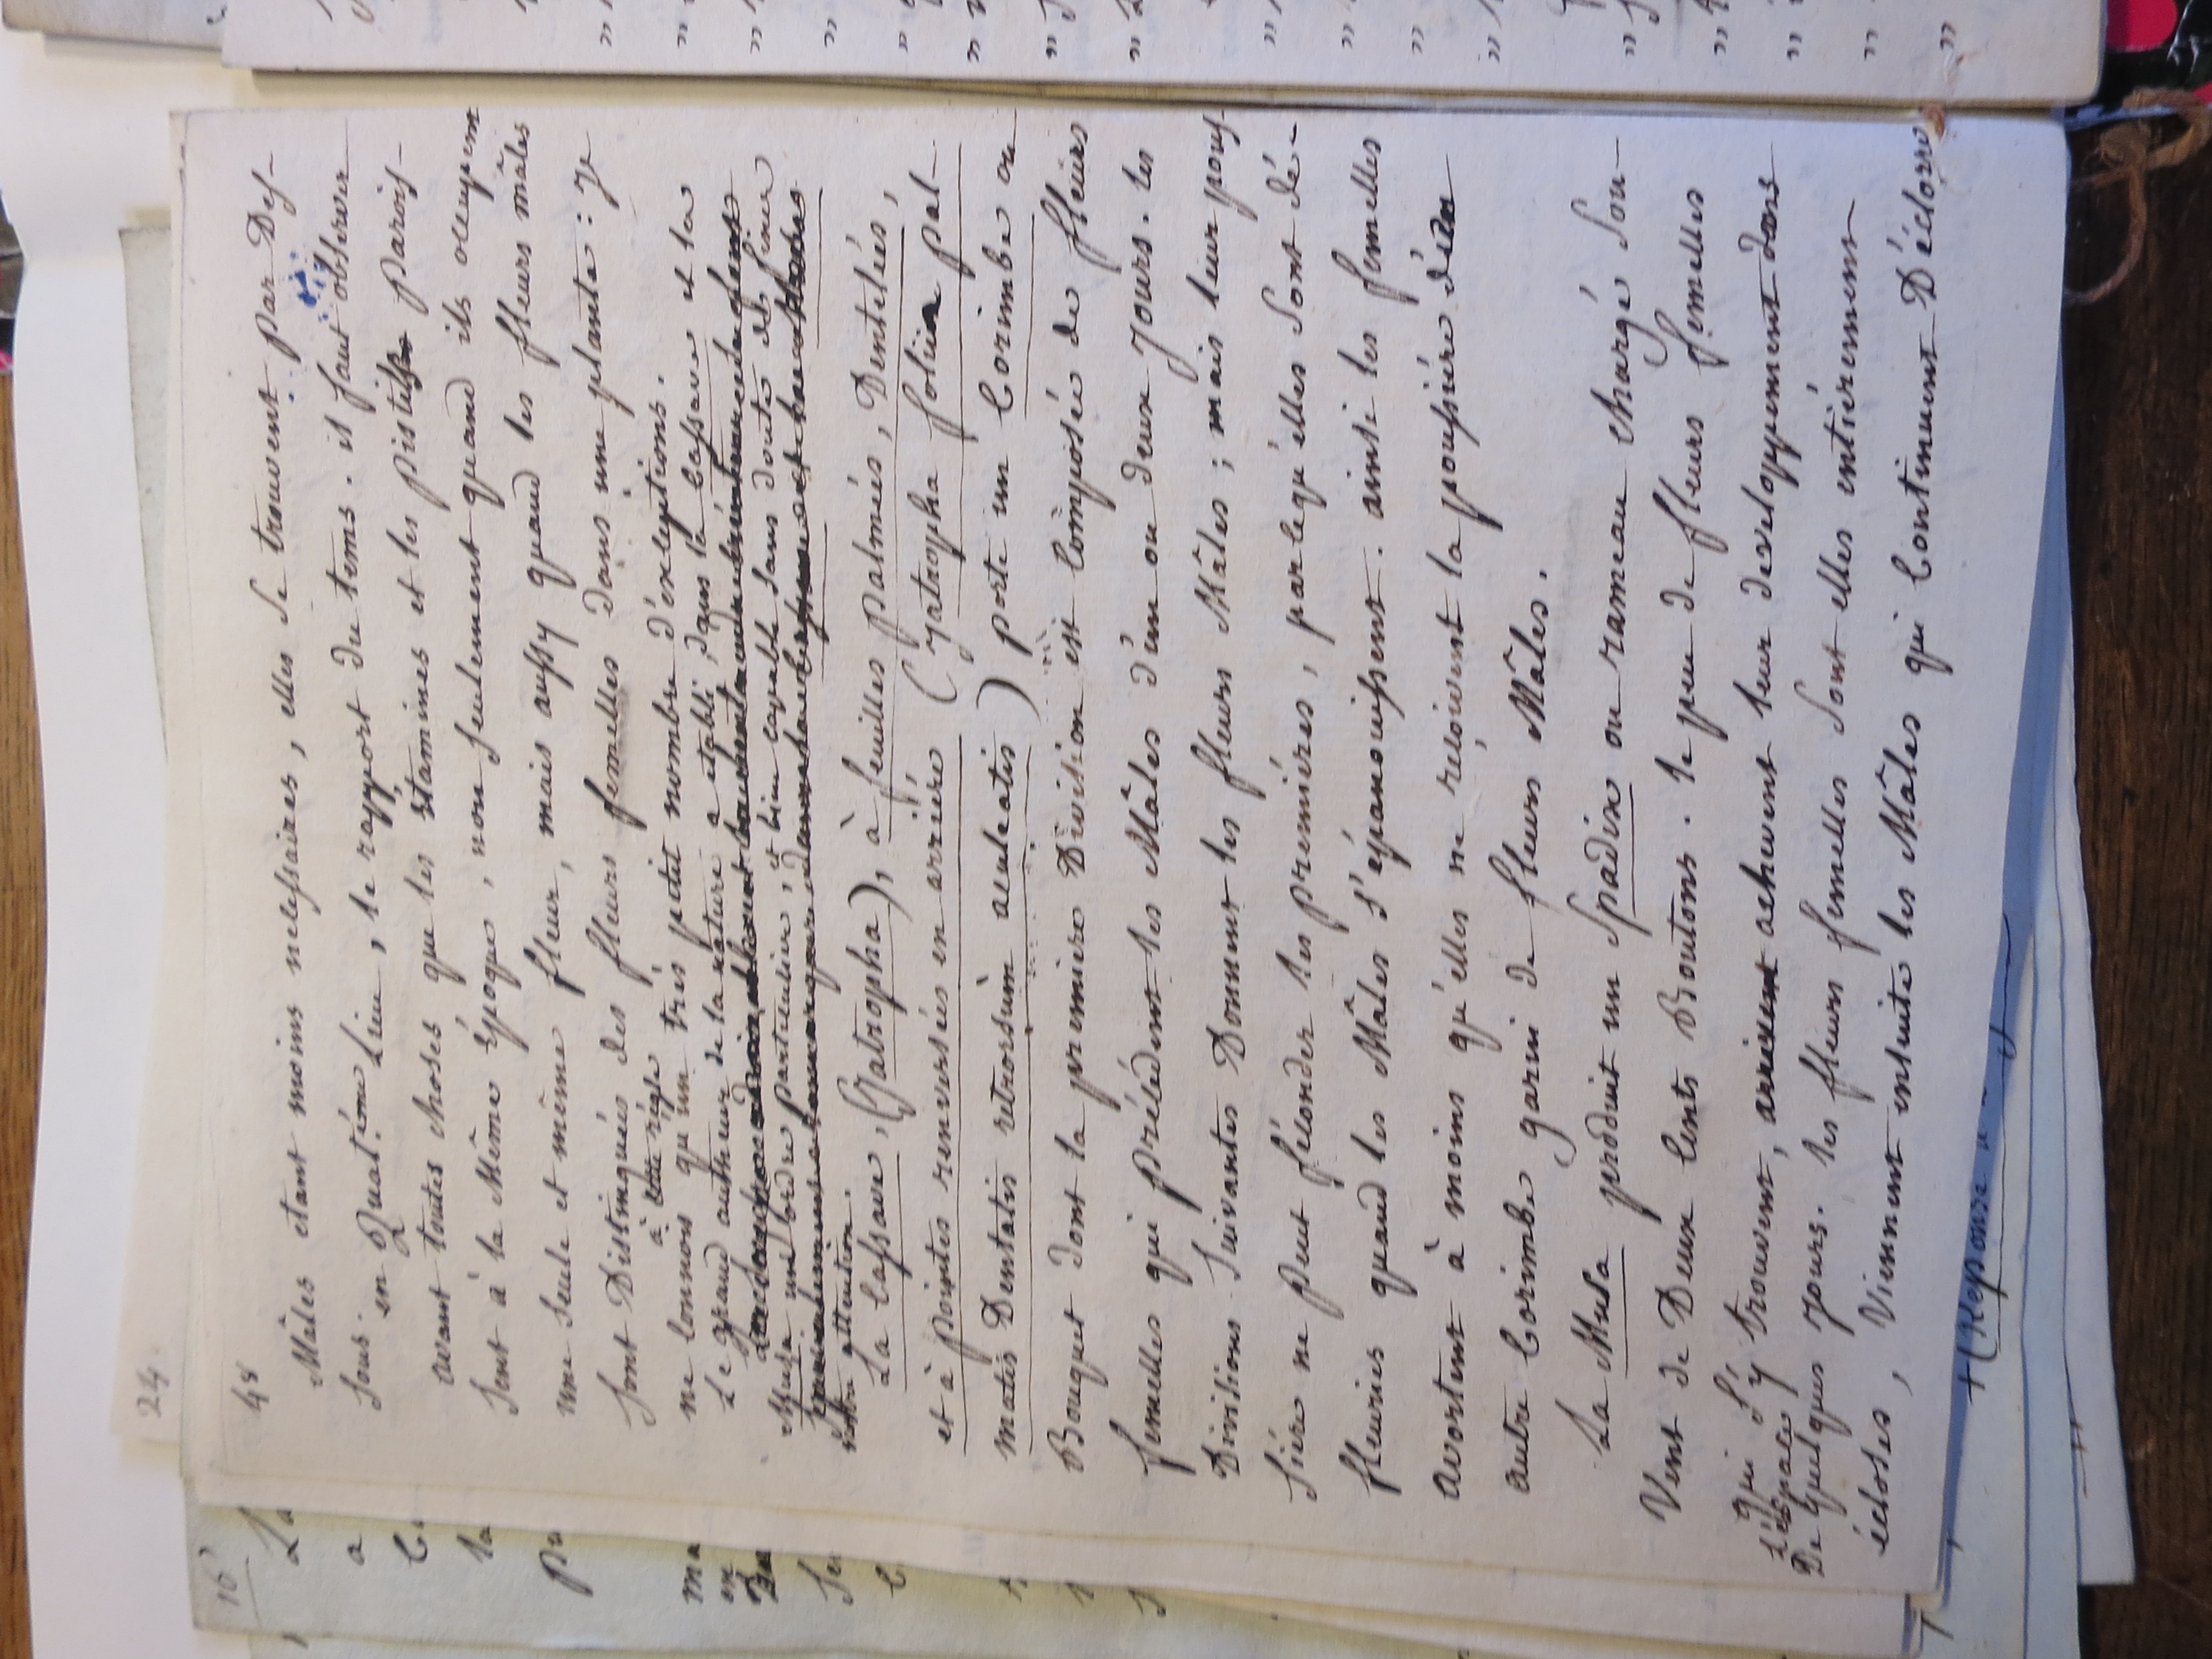 48
Mâles etant moins necessaires, elles se trouvent par Des-
sous. en Quatrième Lieu, le rapport du tems. il faut observer
avant toutes choses que les stamines et les pistils parois-
sent à la Même Epoque, non seulement quand ils occupent
une seule et même fleur, mais aussy quand les fleurs mâles
sont Distinguées des fleurs femelles dans une plante: je
ne connois qu'un très petit nombre d'exceptions.
à cette règle
Le grand autheur de la nature a etabli, dans la Cassave et la
Musa une ordre particulier, et bien capable sans doute de fixer
notre attention.
La Cassave, (Jatropha), à feuilles palmées, Dentelées,
et à pointes renversées en arrière (jatropha foliis pal-
matis Dentatis retrorsùm aculeatis) porte un Corimbe ou
Bouquet dont la première Division est Composée de fleurs
femelles qui précédent les Mâles d'un ou deux jours. les
Divisions Suivantes Donnent les fleurs Mâles; mais leur pous-
sière ne peut féconder les premières, parcequ'elles Sont dé-
fleuries quand les Mâles s'épanouissent. ainsi les femelles
avortent à moins qu'elles ne reçoivent la poussière d'un
autre Corimbe garni de fleurs Mâles.
La Musa produit un Spadix ou rameau chargé Sou-
Vent de Deux Cents Boutons. le peu de fleurs femelles
qui s'y trouvent, achevent leur developpement dans
L'espace
De quelques jours. les fleurs femelles Sont elles entièrement
écloses, Viennent ensuite les Mâles qui Continuent D'éclorre
24.
16
La
a
la
ma
en
+(Reponse